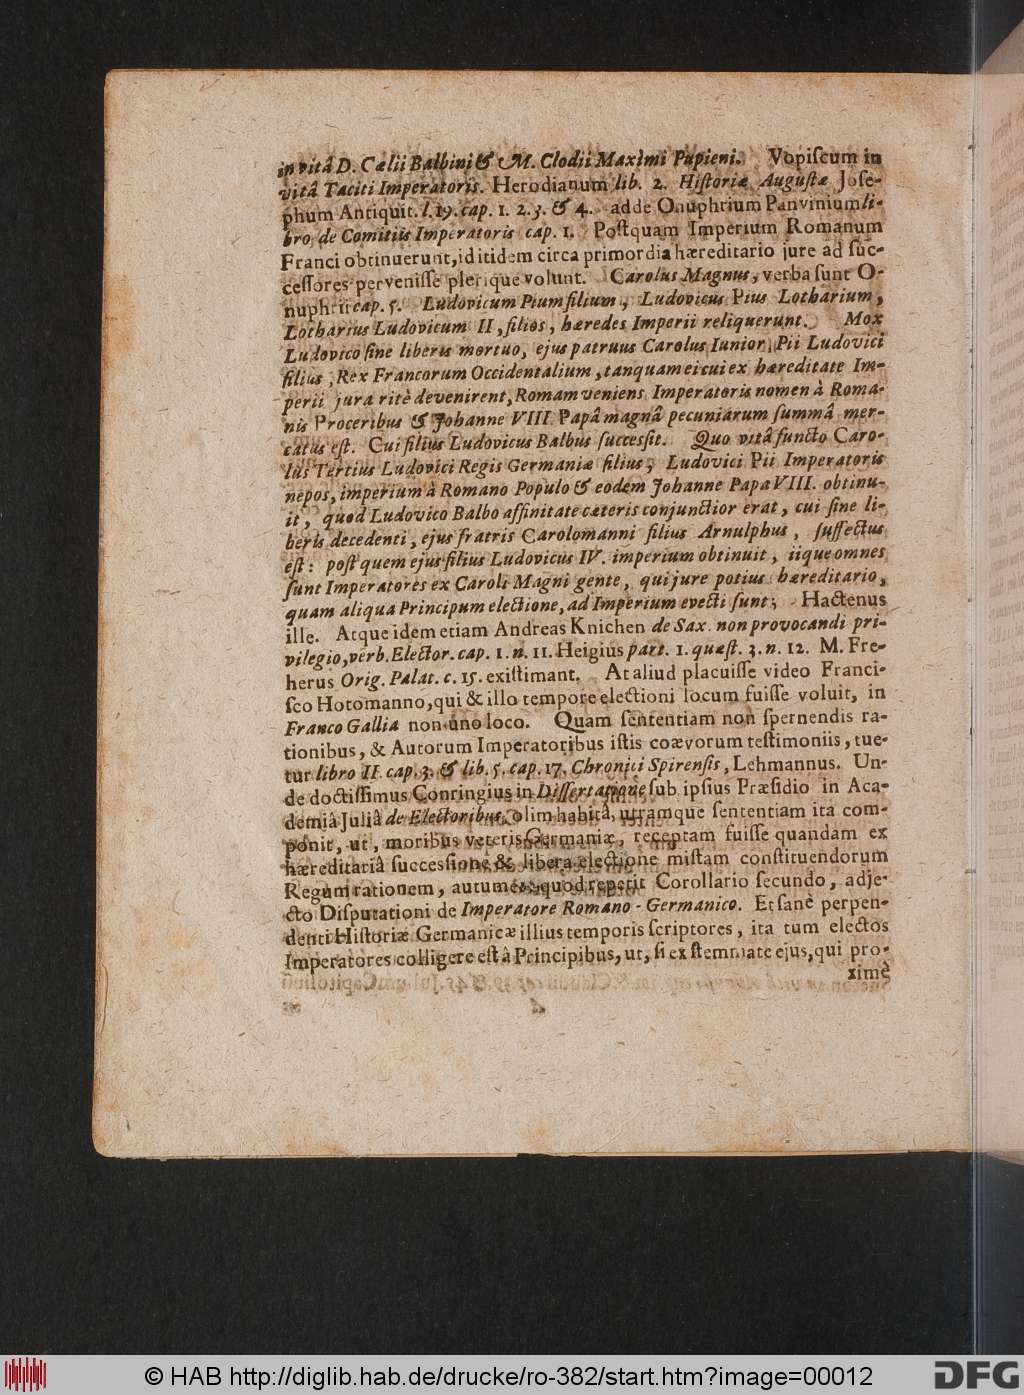 in vitâ D. Cælii Balbini & M. Clodii Maximi Pupieni. Vopiſcum in
vitâ Taciti Imperatoris. Herodianum lib. 2. Hiſtoriæ Auguſtæ Joſe-
phum Antiquit. l. 19. cap. 1. 2. 3. & 4. adde Onuphrium Panvinium li-
bro de Comitiis Imperatoris cap. 1. Poſtquam Imperium Romanum
Franci obtinuerunt, id itidem circa primordia hæreditario jure ad ſuc-
ceſſores perveniſſe plerique volunt. Carolus Magnus, verba ſunt O-
nuphrii cap. 5. Ludovicum Pium filium, Ludovicus Pius Lotharium,
Lotharius Ludovicum II, filios, hæredes Imperii reliquerunt. Mox
Ludovico ſine liberis mortuo, ejus patruus Carolus Iunior, Pii Ludovici
filius, Rex Francorum Occidentalium, tanquam ei cui ex hæreditate Im-
perii jura ritè devenirent, Romam veniens Imperatoris nomen à Roma-
nis Proceribus & Johanne VIII Papâ magnâ pecuniarum ſummâ mer-
catus eſt. Cui filius Ludovicus Balbus ſucceſſit. Quo vitâ functo Caro-
lus Tertius Ludovici Regis Germaniæ filius, Ludovici Pii Imperatoris
nepos, imperium à Romano Populo & eodem Johanne Papa VIII. obtinu-
it, quod Ludovico Balbo affinitate cæteris conjunctior erat, cui ſine li-
beris decedenti, ejus fratris Carolomanni filius Arnulphus, ſuffectus
eſt: poſt quem ejus filius Ludovicus IV. imperium obtinuit, iique omnes
ſunt Imperatores ex Caroli Magni gente, qui jure potius hæreditario,
quam aliqua Principum electione, ad Imperium evecti ſunt; Hactenus
ille. Atque idem etiam Andreas Knichen de Sax. non provocandi pri-
vilegio, verb. Elector. cap. 1. n. 11. Heigius part. 1. quæſt. 3. n. 12. M. Fre-
herus Orig. Palat. c. 15. exiſtimant. At aliud placuiſſe video Franci-
ſco Hotomanno, qui & illo tempore electioni locum fuiſſe voluit, in
Franco Gallia non uno loco. Quam ſententiam non ſpernendis ra-
tionibus, & Autorum Imperatoribus iſtis coævorum teſtimoniis, tue-
tur libro II. cap. 3. & lib. 5. cap. 17. Chronici Spirenſis, Lehmannus. Un-
de doctiſſimus Conringius in Diſſertatione ſub ipſius Præſidio in Aca-
demiâ Juliâ de Electoribus, olim habitâ, utramque ſententiam ita com-
ponit, ut, moribus veteris Germaniæ, receptam fuiſſe quandam ex
hæreditariâ ſucceſſione & libera electione miſtam conſtituendorum
Regum rationem, autumet; quod repetit Corollario ſecundo, adje-
cto Diſputationi de Imperatore Romano-Germanico. Et ſanè perpen-
denti Hiſtoriæ Germanicæ illius temporis ſcriptores, ita tum electos
Imperatores colligere eſt â Principibus, ut, ſi ex ſtemmate ejus, qui pro-
ximè
© HAB http://diglib.hab.de/drucke/ro-382/start.htm?image=00012
DFG